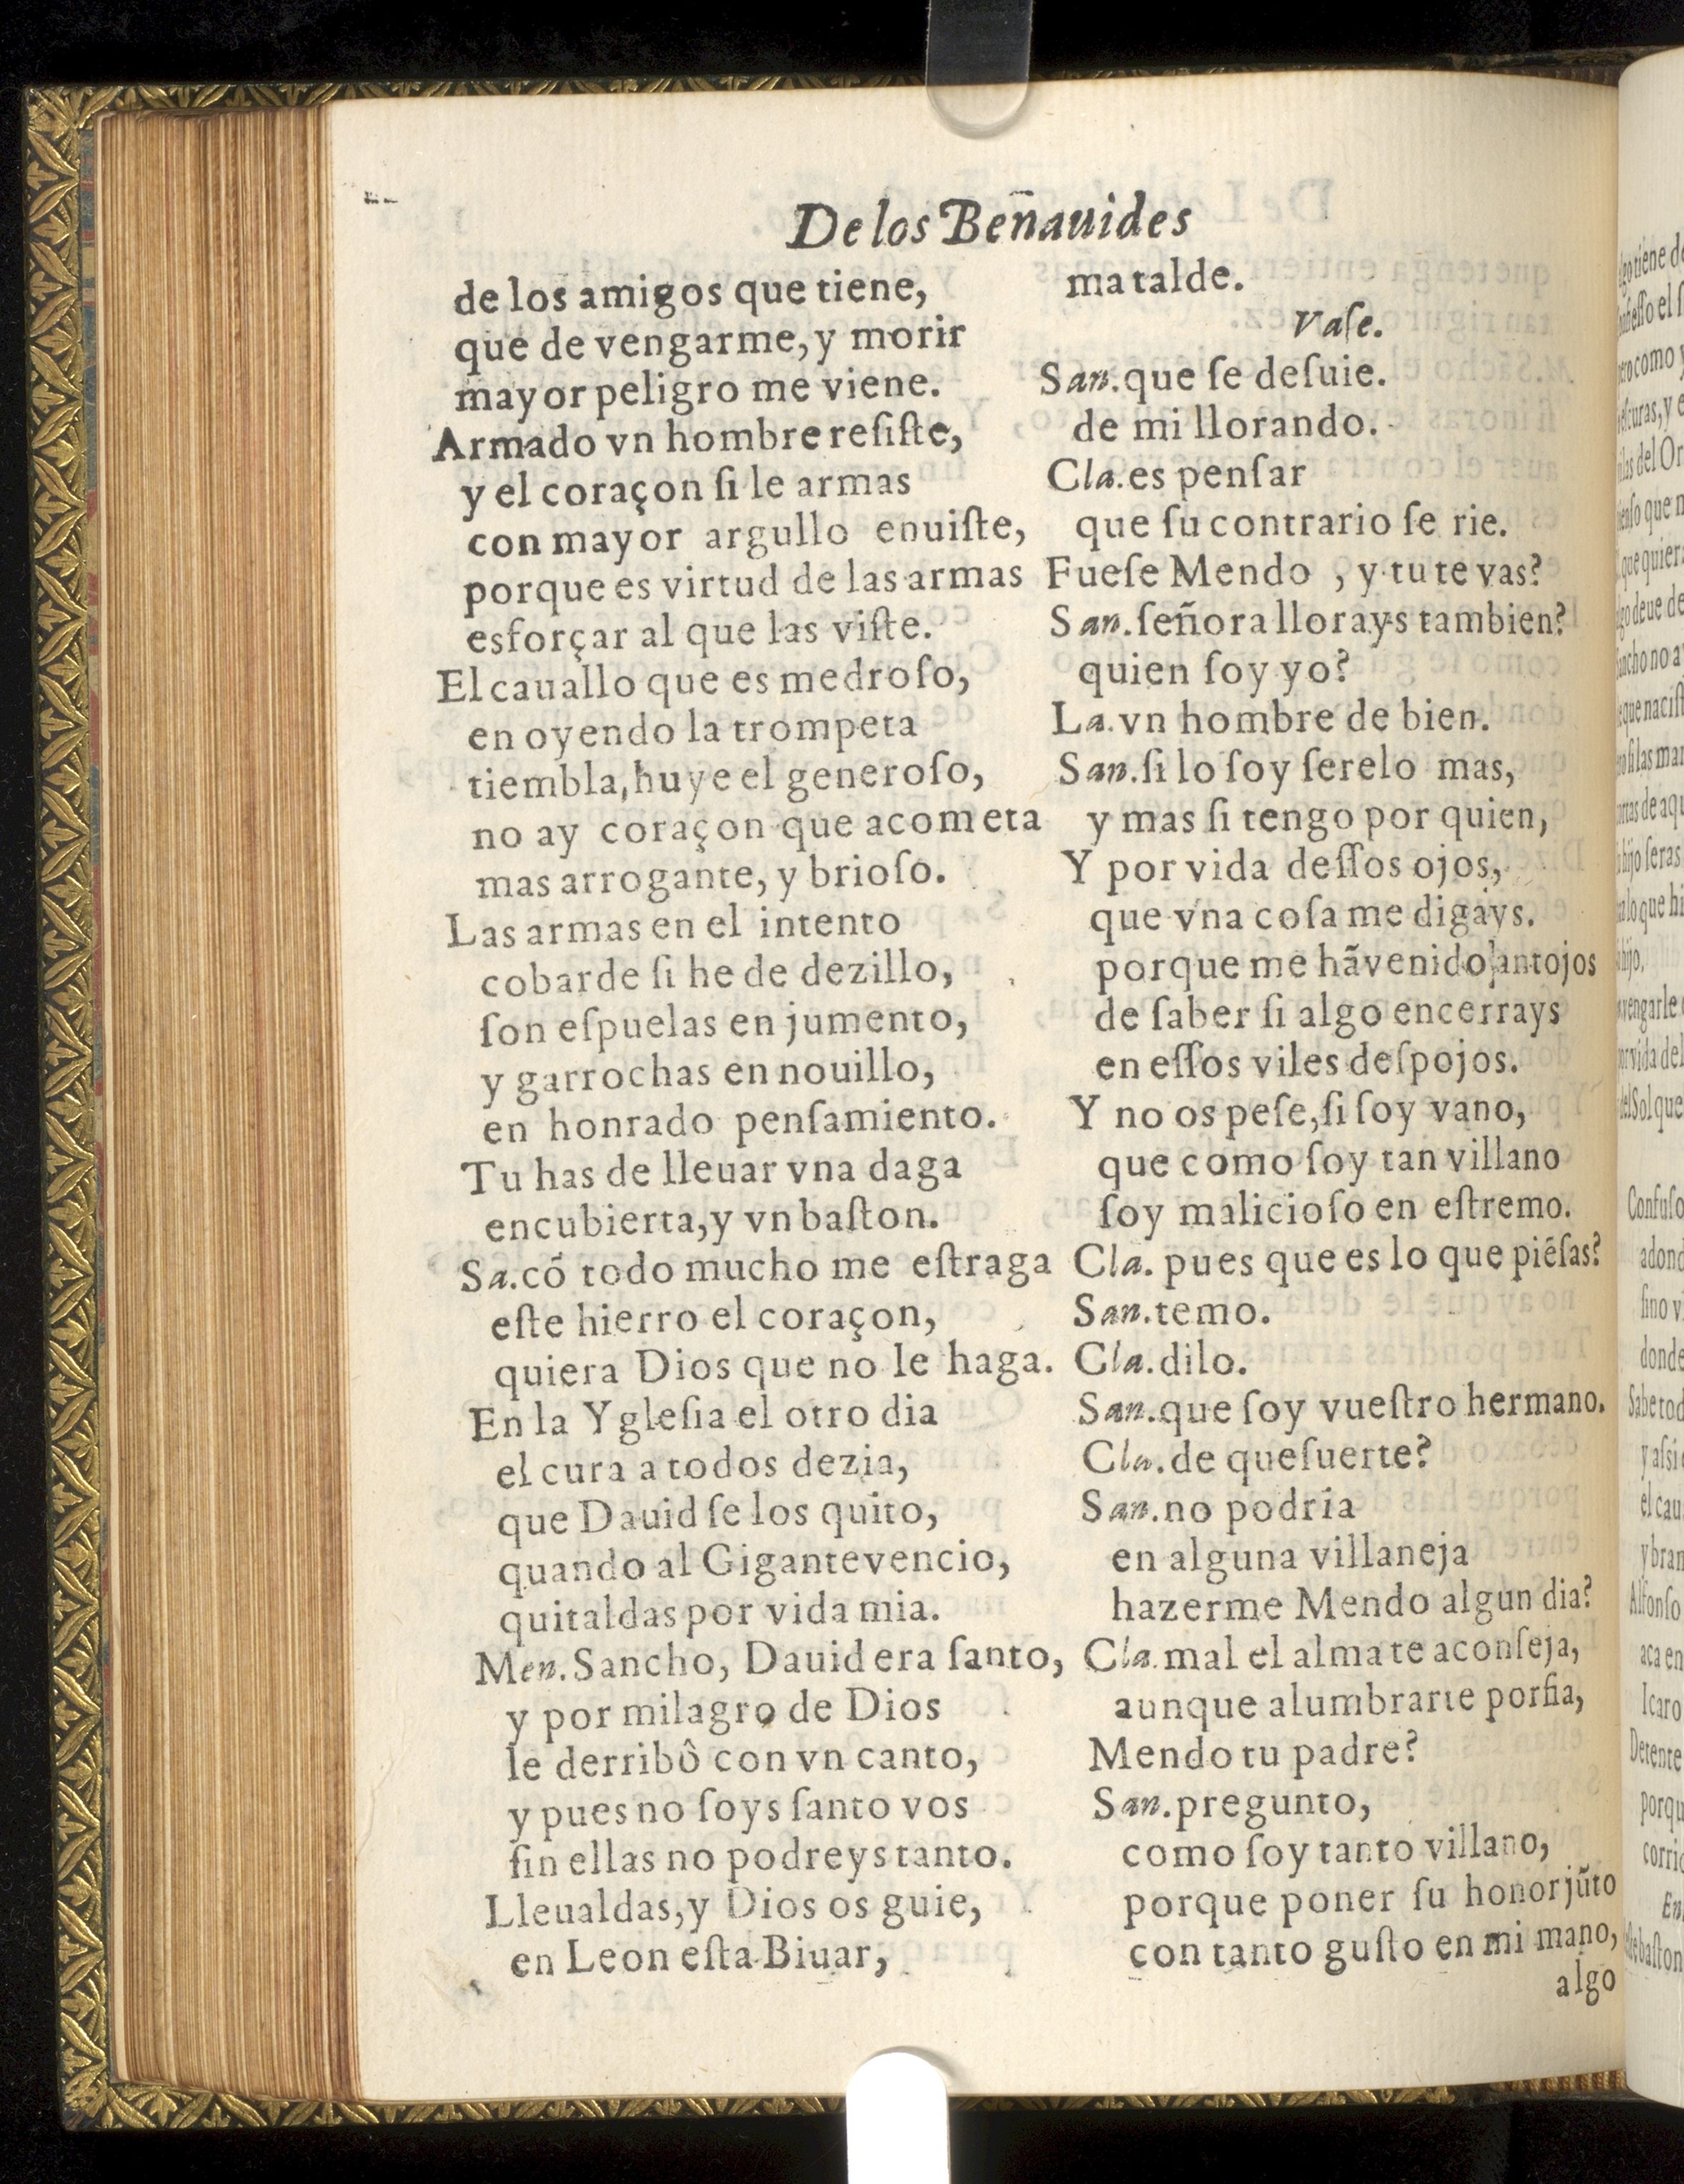 De los Beñauides
de los amigos que tiene,
que de vengarme, y morir
mayor peligro me viene.
Armado vn hombre resiſte,
y el coraçon ſi le armas
con mayor argullo enuiſte,
porque es virtud de las armas
esforçar al que las viſte.
El cauallo que es medroſo,
en oyendo la trompeta
tiembla, huye el generoſo,
no ay coraçon que acometa
mas arrogante, y brioſo.
Las armas en el intento
cobarde ſi he de dezillo,
ſon eſpuelas en jumento,
y garrochas en nouillo,
en honrado penſamiento.
Tu has de lleuar vna daga
encubierta, y vn baſton.
Sa. cõ todo mucho me eſtraga
eſte hierro el coraçon,
quiera Dios que no le haga.
En la Ygleſia el otro dia
el cura a todos dezia,
que Dauid ſe los quito,
quando al Gigante vencio,
quitaldas por vida mia.
Men. Sancho, Dauid era ſanto,
y por milagro de Dios
le derribô con vn canto,
y pues no ſoys ſanto vos
ſin ellas no podreys tanto.
Lleualdas, y Dios os guie,
en Leon eſta Biuar,
matalde.
Vaſe.
San. que ſe deſuie.
de mi llorando.
Cla. es penſar
que ſu contrario ſe rie.
Fueſe Mendo , y tu te vas?
San. ſeñora llorays tambien?
quien ſoy yo?
La. vn hombre de bien.
San. ſi lo ſoy ſerelo mas,
y mas ſi tengo por quien,
Y por vida deſſos ojos,
que vna coſa me digays.
porque me hã venido antojos
de ſaber ſi algo encerrays
en eſſos viles deſpojos.
Y no os peſe, ſi ſoy vano,
que como ſoy tan villano
ſoy malicioſo en eſtremo.
Cla. pues que es lo que piẽſas?
San. temo.
Cla. dilo.
San. que ſoy vueſtro hermano.
Cla. de que ſuerte?
San. no podria
en alguna villaneja
hazerme Mendo algun dia?
Cla. mal el alma te aconſeja,
aunque alumbrarte porfia,
Mendo tu padre?
San. pregunto,
como ſoy tanto villano,
porque poner ſu honor jũto
con tanto guſto en mi mano,
algo